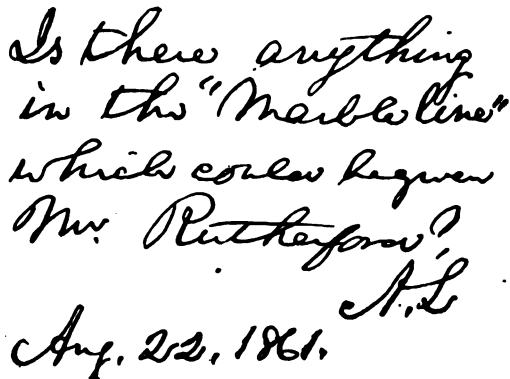 Is there anything
in the "Marble line"
which could be given
Mr. Rutherford?
A.L
Aug. 22, 1861.